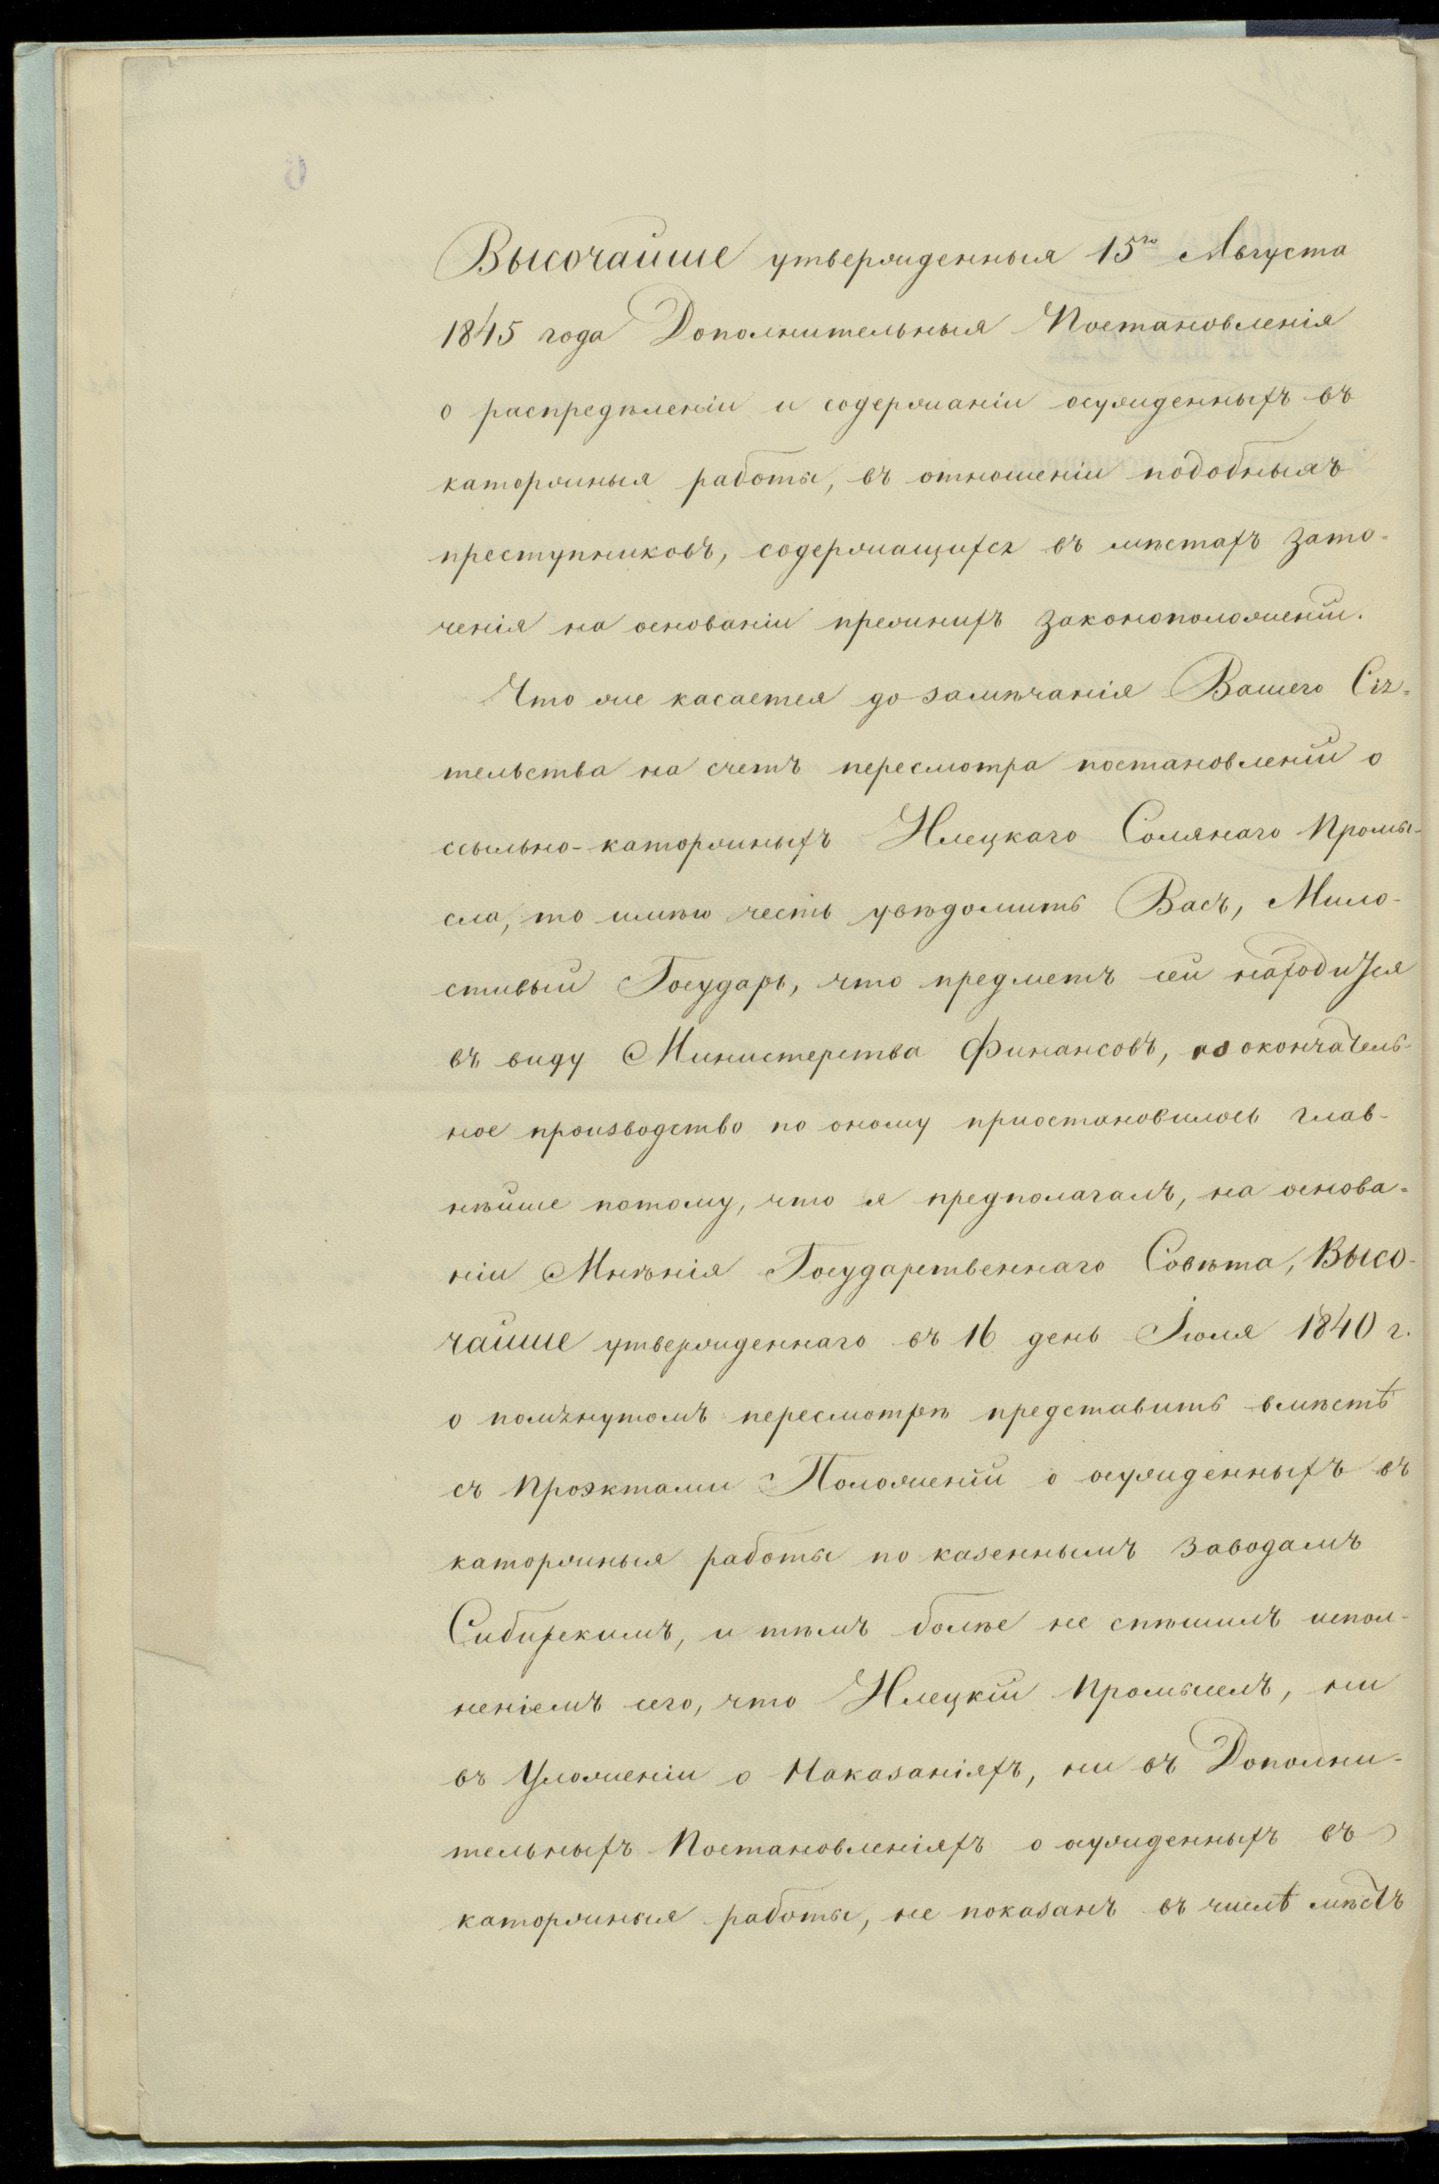 Высочайше утвержденныя 15го Августа
1845 года Дополнительныя Постановленія
о распредѣленіи и содержаніи осужденныхъ въ
каторжныя работы, въ отношеніи подобныхъ
преступниковъ, содержащихся въ мѣстахъ зато-
ченія на основаніи прежнихъ законоположеній.
Что же касается до замѣчанія Вашего Сія-
тельства на счетъ пересмотра постановленій о
ссыльно-каторжныхъ Илецкаго Солянаго Промы-
сла, то имѣю честь увѣдомить Васъ, Мило-
стивый Государь, что предметъ сей находится
въ виду Министерства Финансовъ, но окончатель-
ное производство по оному пріостановилось глав-
нѣйше потому, что я предполагалъ, на основа-
ніи Мнѣнія Государственнаго Совѣта, Высо-
чайше утвержденнаго въ 16 день Іюля 1840 г.
о помянутомъ пересмотрѣ представить вмѣстѣ
съ Проэктами Положеній о осужденныхъ въ
каторжныя работы по казеннымъ заводамъ
Сибирскимъ, и тѣмъ болѣе не спѣшилъ испол-
неніемъ сего, что Илецкій Промыселъ, ни
въ Уложеніи о Наказаніяхъ, ни въ Дополни-
тельныхъ Постановленіяхъ о осужденныхъ въ
каторжныя работы, не показанъ въ числѣ мѣстъ